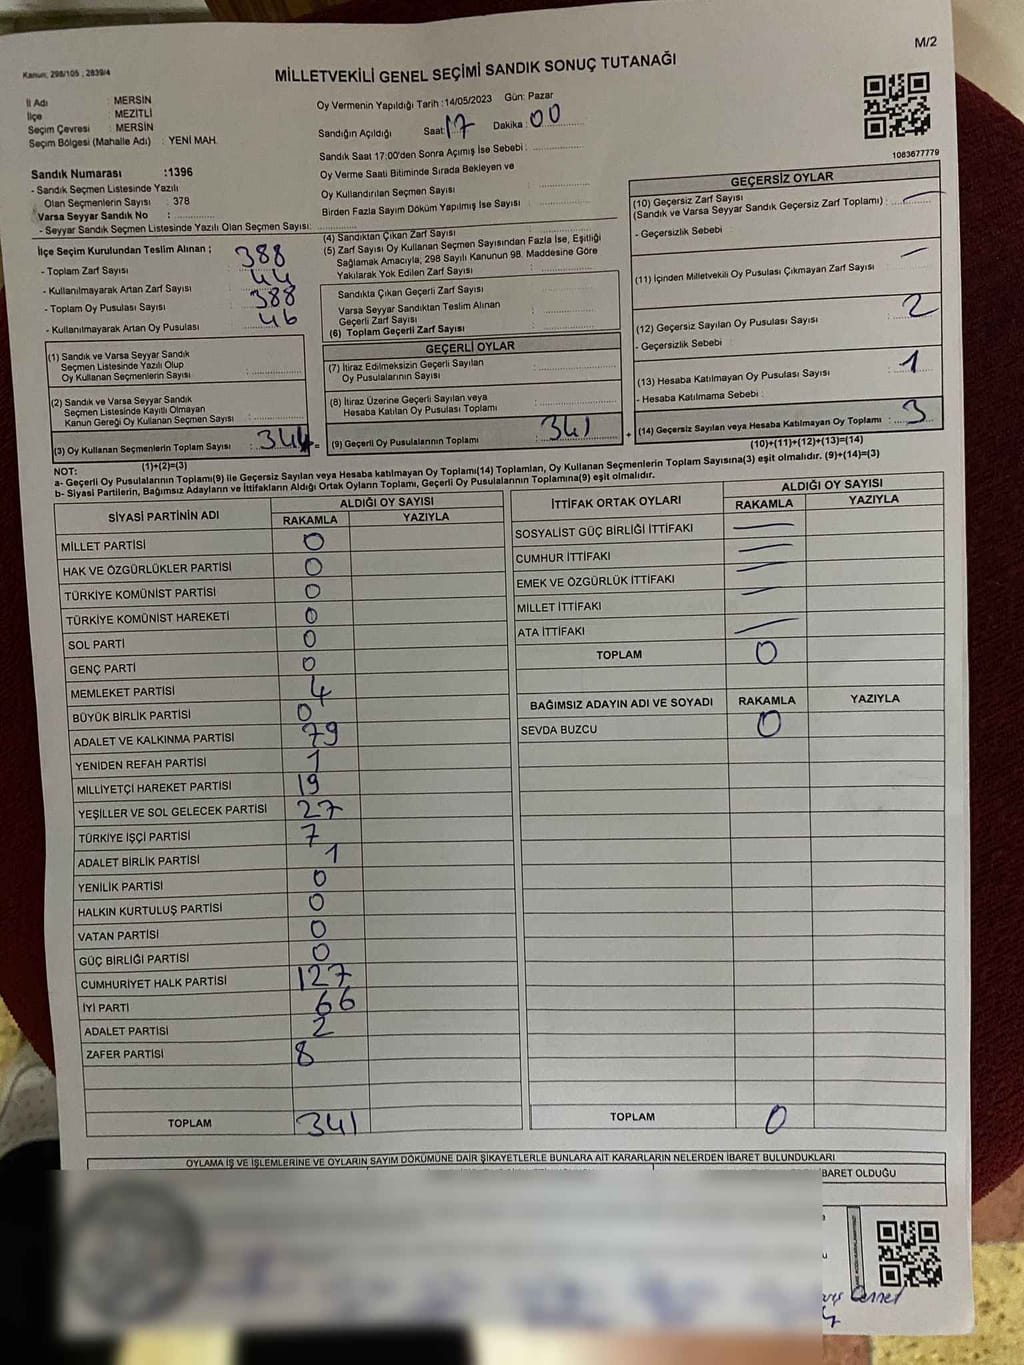 Kanun; 298/105 , 2839/4
M/2
MİLLETVEKİLİ GENEL SEÇİMİ SANDIK SONUÇ TUTANAĞI
İl Adı : MERSİN
İlçe : MEZİTLİ
Seçim Çevresi : MERSİN
Seçim Bölgesi (Mahalle Adı) : YENİ MAH.
Oy Vermenin Yapıldığı Tarih :14/05/2023 Gün: Pazar
Sandığın Açıldığı Saat: 17 Dakika : 00
Sandık Saat 17:00'den Sonra Açımış İse Sebebi :
Oy Verme Saati Bitiminde Sırada Bekleyen ve
Oy Kullandırılan Seçmen Sayısı :
Birden Fazla Sayım Döküm Yapılmış İse Sayısı :
1083677779
Sandık Numarası :1396
- Sandık Seçmen Listesinde Yazılı
Olan Seçmenlerin Sayısı : 378
Varsa Seyyar Sandık No :
- Seyyar Sandık Seçmen Listesinde Yazılı Olan Seçmen Sayısı:
İlçe Seçim Kurulundan Teslim Alınan ;
- Toplam Zarf Sayısı : 388
- Kullanılmayarak Artan Zarf Sayısı : 44
- Toplam Oy Pusulası Sayısı : 388
- Kullanılmayarak Artan Oy Pusulası : 46
(1) Sandık ve Varsa Seyyar Sandık
Seçmen Listesinde Yazılı Olup
Oy Kullanan Seçmenlerin Sayısı :
(2) Sandık ve Varsa Seyyar Sandık
Seçmen Listesinde Kayıtlı Olmayan
Kanun Gereği Oy Kullanan Seçmen Sayısı :
(3) Oy Kullanan Seçmenlerin Toplam Sayısı : 344 =
(1)+(2)=(3)
(4) Sandıktan Çıkan Zarf Sayısı :
(5) Zarf Sayısı Oy Kullanan Seçmen Sayısından Fazla İse, Eşitliği
Sağlamak Amacıyla; 298 Sayılı Kanunun 98. Maddesine Göre
Yakılarak Yok Edilen Zarf Sayısı :
Sandıkta Çıkan Geçerli Zarf Sayısı :
Varsa Seyyar Sandıktan Teslim Alınan
Geçerli Zarf Sayısı :
(6) Toplam Geçerli Zarf Sayısı :
GEÇERLİ OYLAR
(7) İtiraz Edilmeksizin Geçerli Sayılan
Oy Pusulalarının Sayısı :
(8) İtiraz Üzerine Geçerli Sayılan veya
Hesaba Katılan Oy Pusulası Toplamı :
(9) Geçerli Oy Pusulalarının Toplamı : 341 +
GEÇERSİZ OYLAR
(10) Geçersiz Zarf Sayısı
(Sandık ve Varsa Seyyar Sandık Geçersiz Zarf Toplamı) : —
- Geçersizlik Sebebi :
(11) İçinden Milletvekili Oy Pusulası Çıkmayan Zarf Sayısı : —
(12) Geçersiz Sayılan Oy Pusulası Sayısı : 2
- Geçersizlik Sebebi :
(13) Hesaba Katılmayan Oy Pusulası Sayısı : 1
- Hesaba Katılmama Sebebi :
(14) Geçersiz Sayılan veya Hesaba Katılmayan Oy Toplamı : 3
(10)+(11)+(12)+(13)=(14)
NOT:
a- Geçerli Oy Pusulalarının Toplamı(9) ile Geçersiz Sayılan veya Hesaba katılmayan Oy Toplamı(14) Toplamları, Oy Kullanan Seçmenlerin Toplam Sayısına(3) eşit olmalıdır. (9)+(14)=(3)
b- Siyasi Partilerin, Bağımsız Adayların ve İttifakların Aldığı Oyların Toplamı, Geçerli Oy Pusulalarının Toplamına(9) eşit olmalıdır.
SİYASİ PARTİNİN ADI ALDIĞI OY SAYISI
RAKAMLA YAZIYLA
MİLLET PARTİSİ 0
HAK VE ÖZGÜRLÜKLER PARTİSİ 0
TÜRKİYE KOMÜNİST PARTİSİ 0
TÜRKİYE KOMÜNİST HAREKETİ 0
SOL PARTİ 0
GENÇ PARTİ 0
MEMLEKET PARTİSİ 4
BÜYÜK BİRLİK PARTİSİ 0
ADALET VE KALKINMA PARTİSİ 79
YENİDEN REFAH PARTİSİ 1
MİLLİYETÇİ HAREKET PARTİSİ 19
YEŞİLLER VE SOL GELECEK PARTİSİ 27
TÜRKİYE İŞÇİ PARTİSİ 7
ADALET BİRLİK PARTİSİ 1
YENİLİK PARTİSİ 0
HALKIN KURTULUŞ PARTİSİ 0
VATAN PARTİSİ 0
GÜÇ BİRLİĞİ PARTİSİ 0
CUMHURİYET HALK PARTİSİ 127
İYİ PARTİ 66
ADALET PARTİSİ 2
ZAFER PARTİSİ 8
TOPLAM 341
İTTİFAK ORTAK OYLARI ALDIĞI OY SAYISI
RAKAMLA YAZIYLA
SOSYALİST GÜÇ BİRLİĞİ İTTİFAKI —
CUMHUR İTTİFAKI —
EMEK VE ÖZGÜRLÜK İTTİFAKI —
MİLLET İTTİFAKI —
ATA İTTİFAKI —
TOPLAM 0
BAĞIMSIZ ADAYIN ADI VE SOYADI RAKAMLA YAZIYLA
SEVDA BUZCU 0
TOPLAM 0
OYLAMA İŞ VE İŞLEMLERİNE VE OYLARIN SAYIM DÖKÜMÜNE DAİR ŞİKAYETLERLE BUNLARA AİT KARARLARIN NELERDEN İBARET BULUNDUKLARI
İBARET OLDUĞU